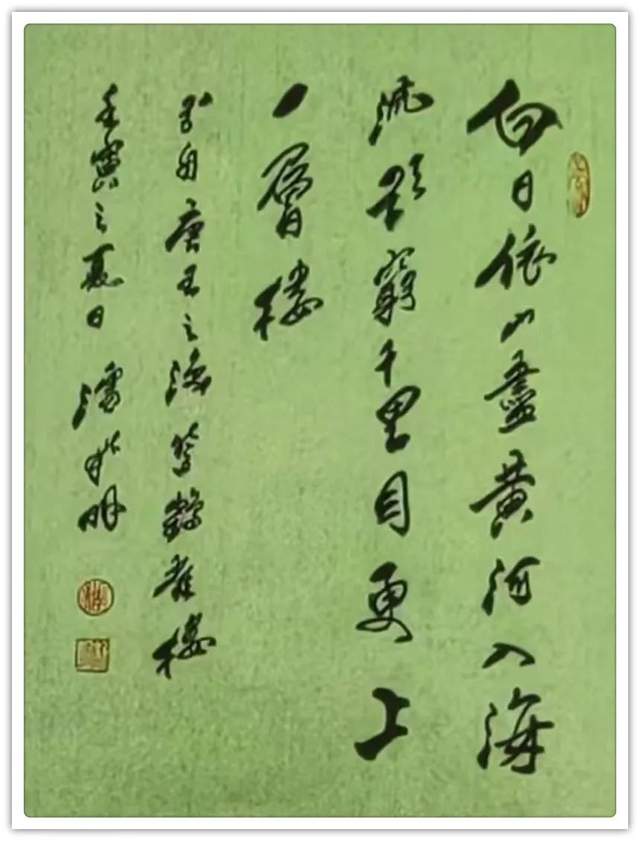 白日依山盡黄河入海
流欲窮千里目更上
一層樓
録自唐王之渙登鸛雀樓
壬寅之夏日潘